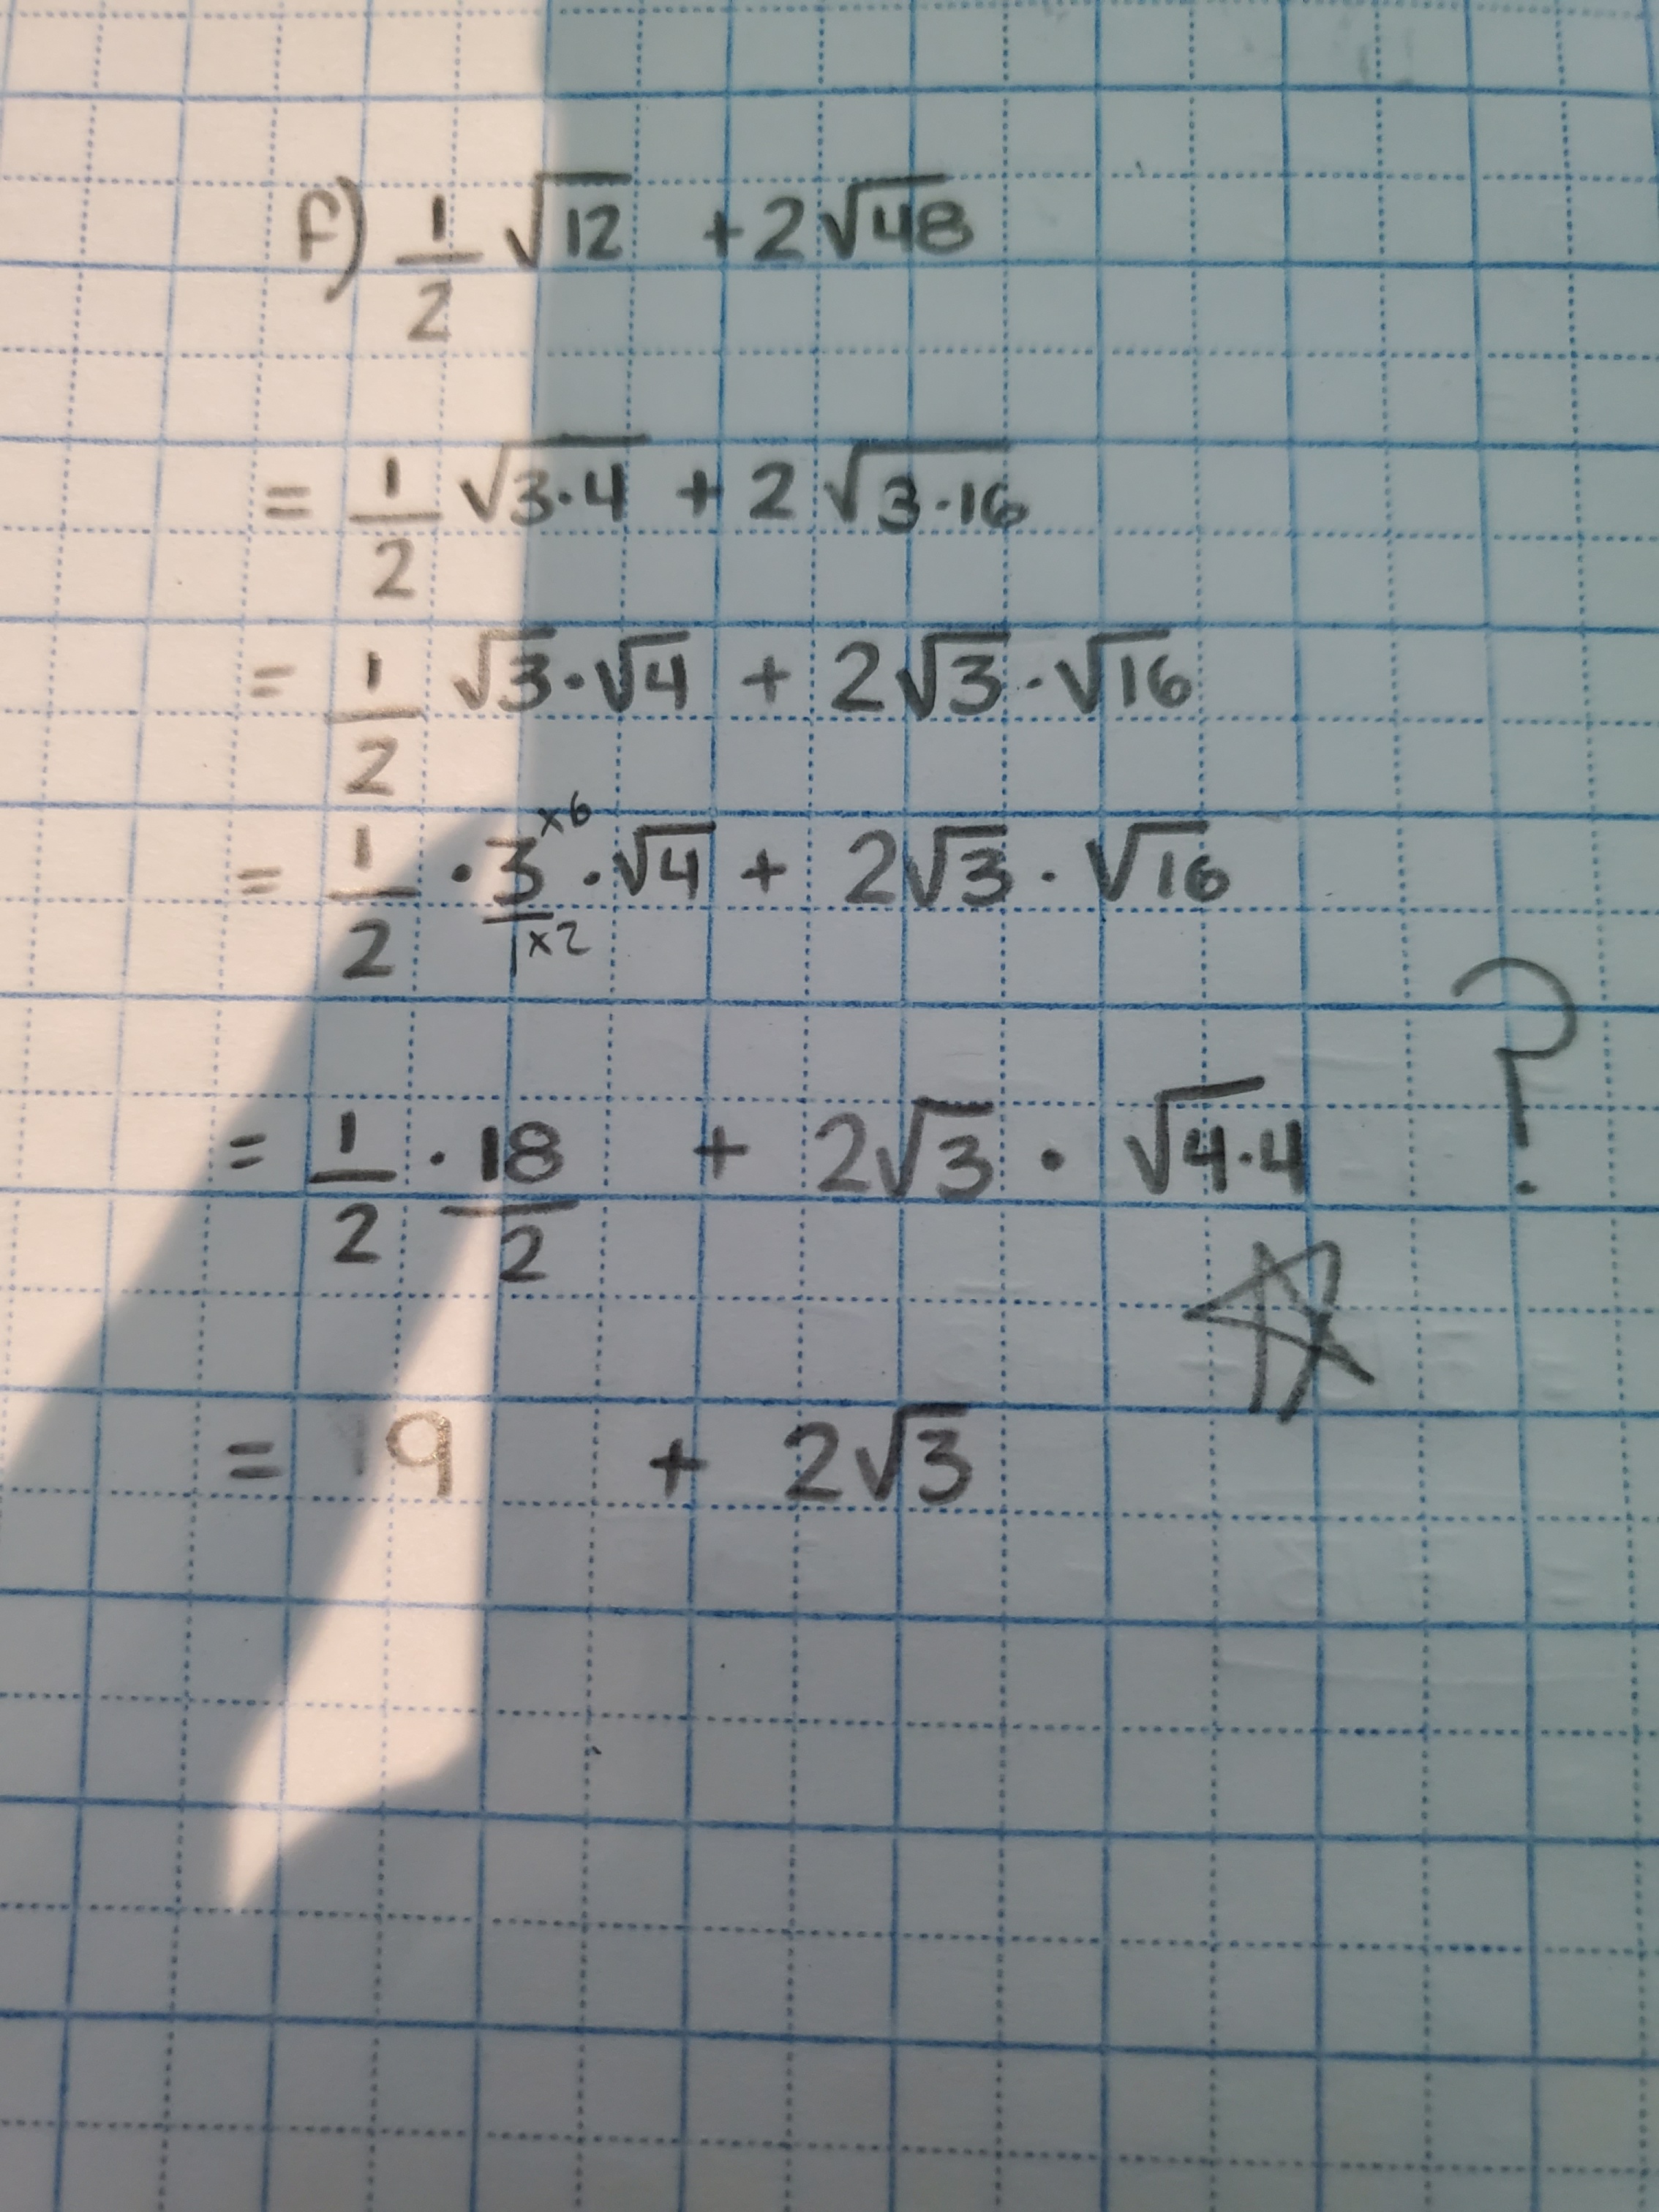 f) 1/2 √12 + 2√48
= 1/2 √3·4 + 2 √3·16
= 1/2 √3·√4 + 2√3·√16
= 1/2 · 3/1 ×6 ×2 · √4 + 2√3 · √16
= 1/2 · 18/2 + 2√3 · √4·4 ?
= 9 + 2√3